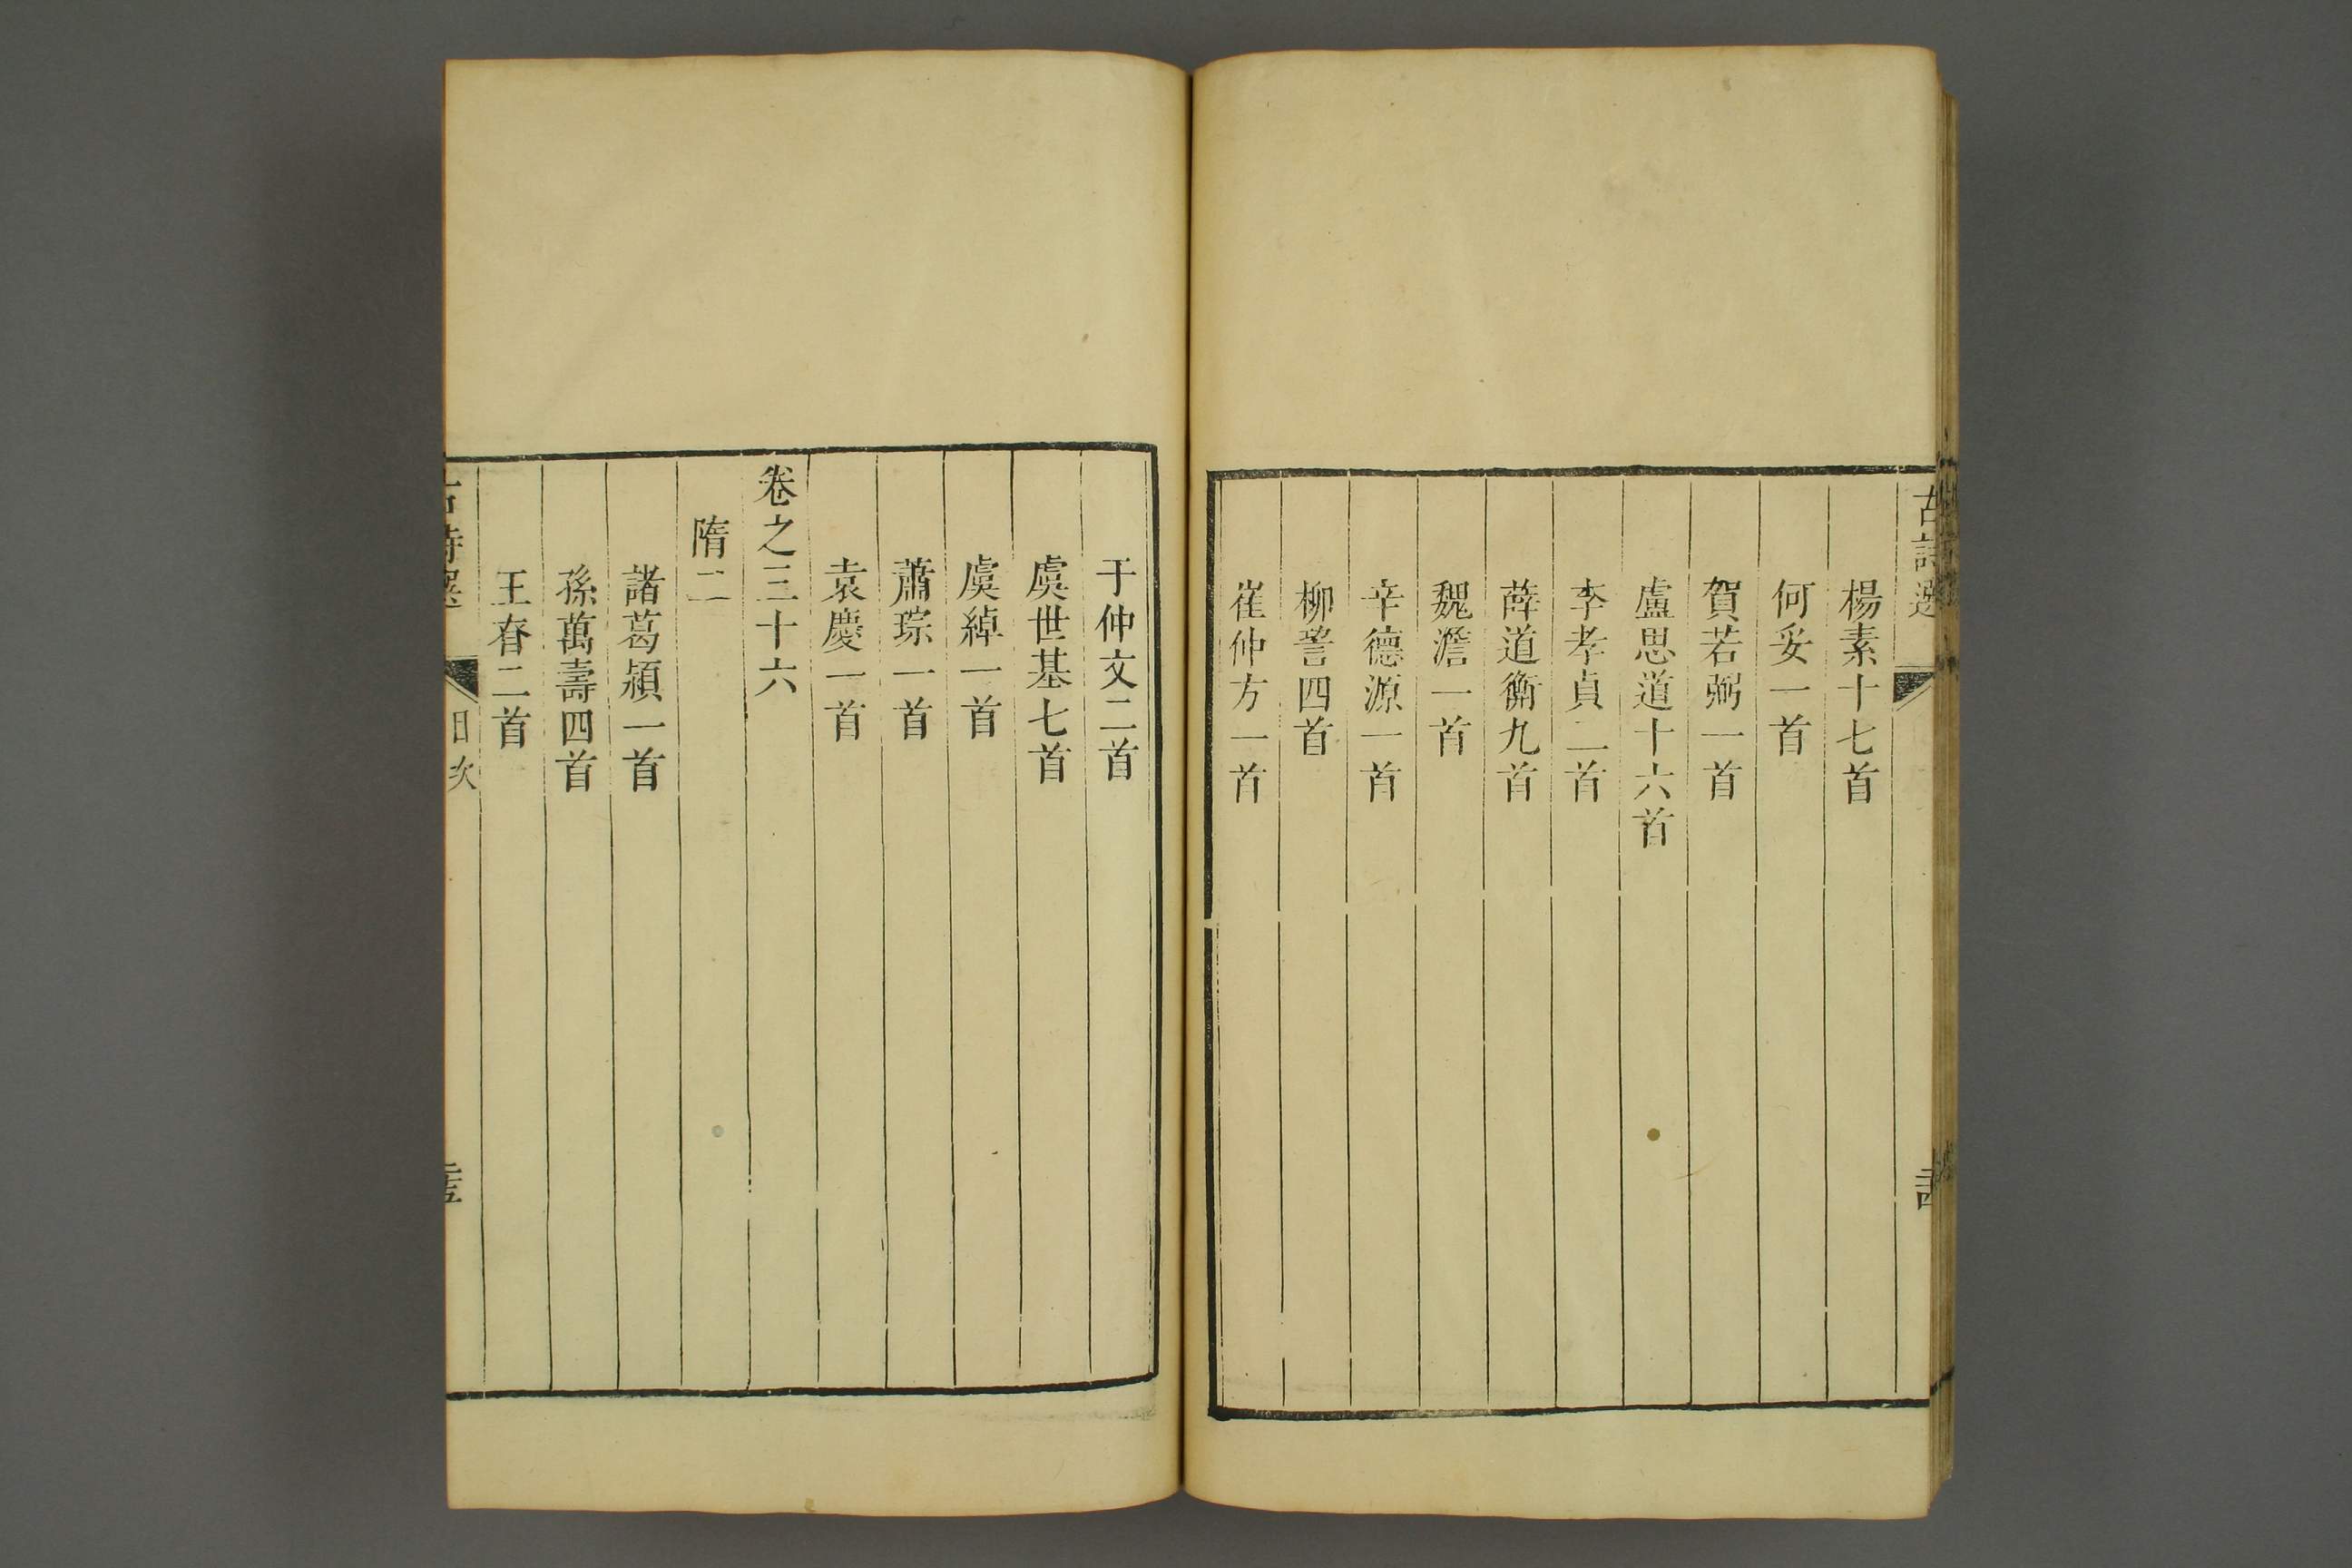 古詩選
楊素十七首
何妥一首
賀若弼一首
盧思道十六首
李孝貞二首
薛道衡九首
魏澹一首
辛德源一首
柳䛒四首
崔仲方一首
于仲文二首
虞世基七首
虞綽一首
蕭琮一首
袁慶一首
卷之三十六
隋二
諸葛潁一首
孫萬壽四首
王眘二首
古詩選
目次